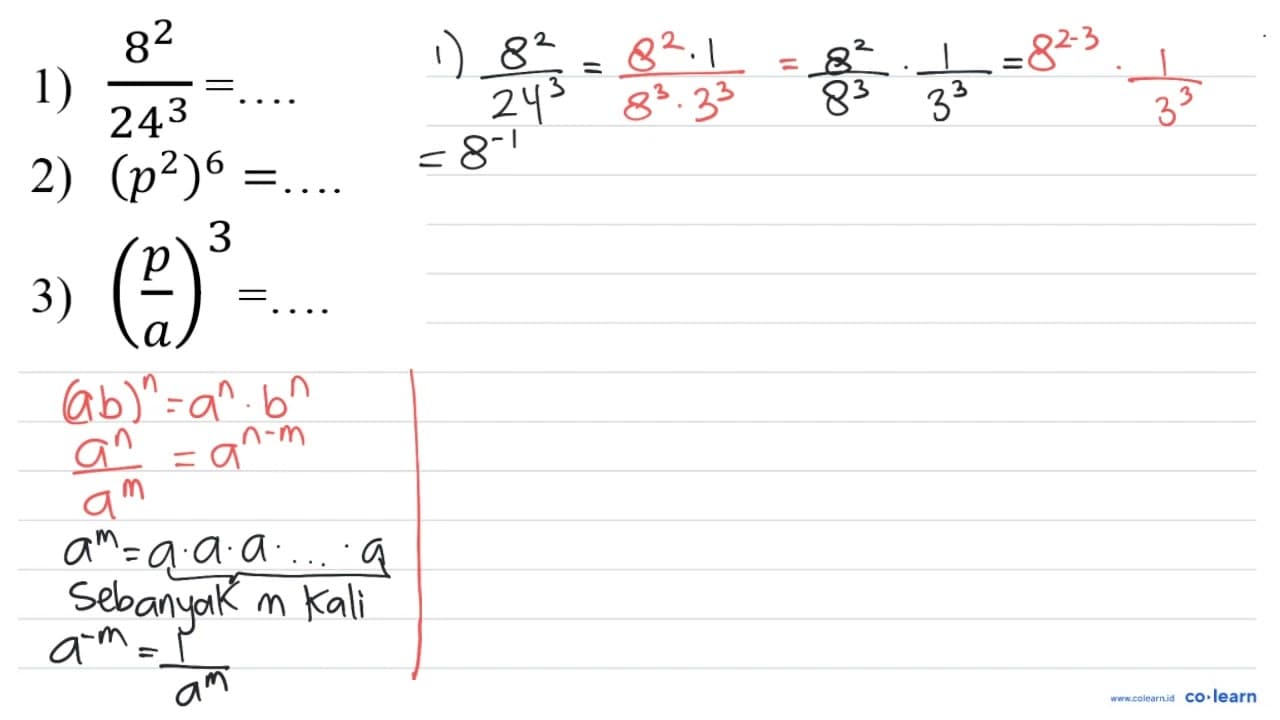 1) 8²/24³ = ....
2) (p²)⁶ = ....
3) (p/a)³ = ....
(ab)ⁿ = aⁿ · bⁿ
aⁿ/aᵐ = aⁿ⁻ᵐ
aᵐ = a · a · a · ... · a
Sebanyak m Kali
a⁻ᵐ = 1/aᵐ
1) 8²/24³ = 8² · 1/8³ · 3³ = 8²/8³ · 1/3³ = 8²⁻³ · 1/3³
= 8⁻¹
www.colearn.id co·learn